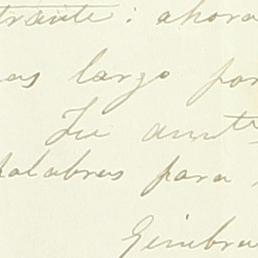 trante: ahora
as largo por
Tu amte
palabras para
Ginebra